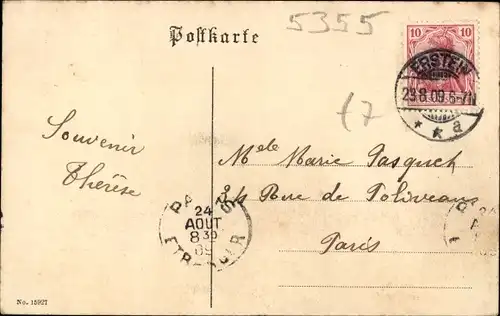 5355
Postkarte
10 10
ERSTEIN
23.8.09.5-7N
* * a
Souvenir
Thérèse
Melle Marie Pasquet
Rue de Poliveau
Paris
PARIS
24
AOUT
8 30
09
ETRANGER
No. 15927